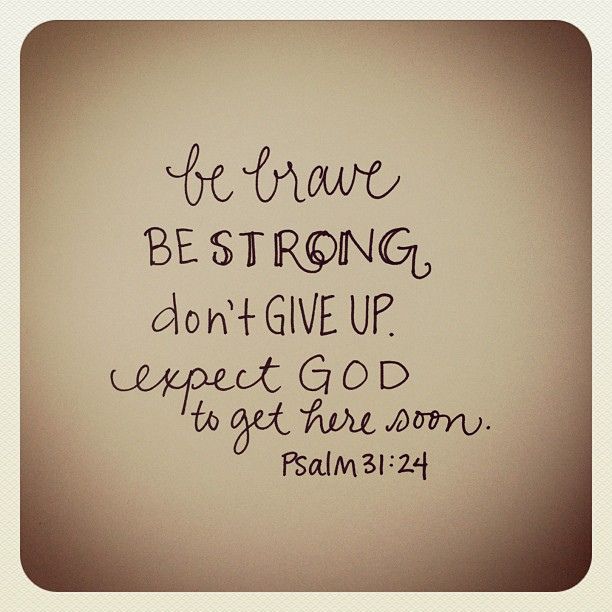 be brave
BE STRONG
don't GIVE UP.
expect GOD
to get here soon.
Psalm 31:24